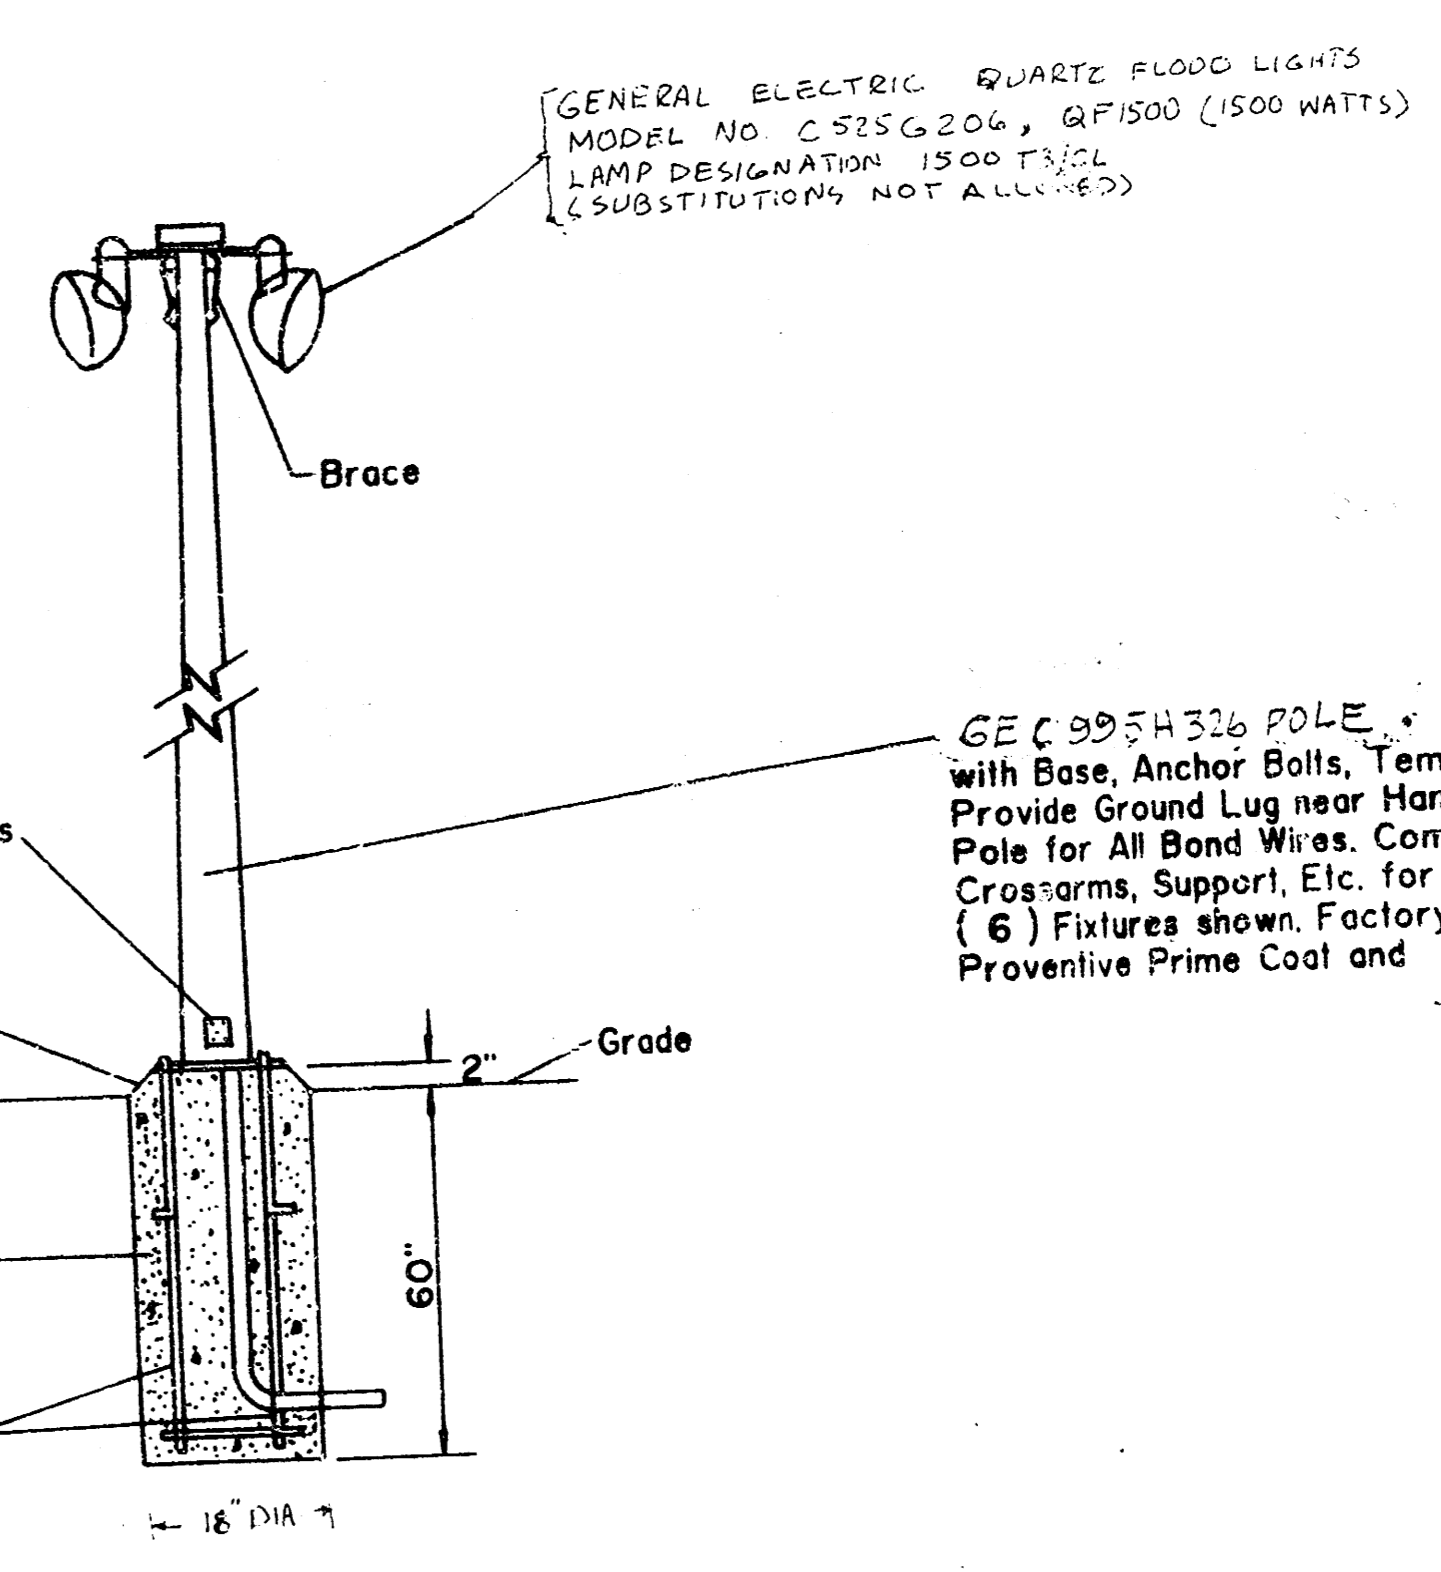 GENERAL ELECTRIC QUARTZ FLOOD LIGHTS
MODEL NO. C525G206, QF1500 (1500 WATTS)
LAMP DESIGNATION 1500 T3/CL
(SUBSTITUTIONS NOT ALLOWED)
Brace
GE C995H326 POLE
with Base, Anchor Bolts, Tem
Provide Ground Lug near Han
Pole for All Bond Wires. Com
Crossarms, Support, Etc. for
( 6 ) Fixtures shown. Factory
Proventive Prime Coat and
s
Grade
2"
60"
18" DIA